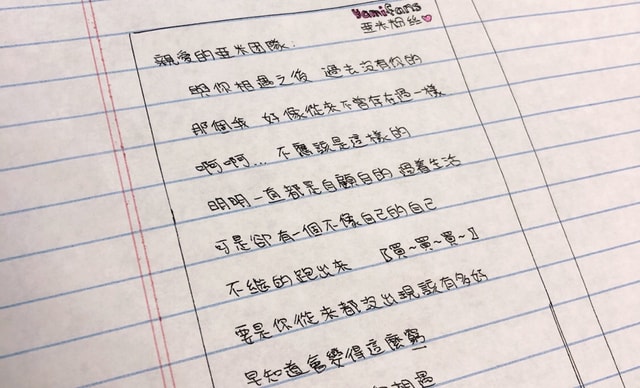 Yamifans
亞米粉絲
親愛的亞米團隊：
與你相遇之後 過去沒有你的
那個我 好像從來不曾存在過一樣
啊啊... 不應該是這樣的
明明一直都是自顧自的 過着生活
可是卻有一個不像自己的自己
不繼的跑出來 【買~買~買~】
要是你從來都沒出現該有多好
早知道會變得這麼窮
相遇